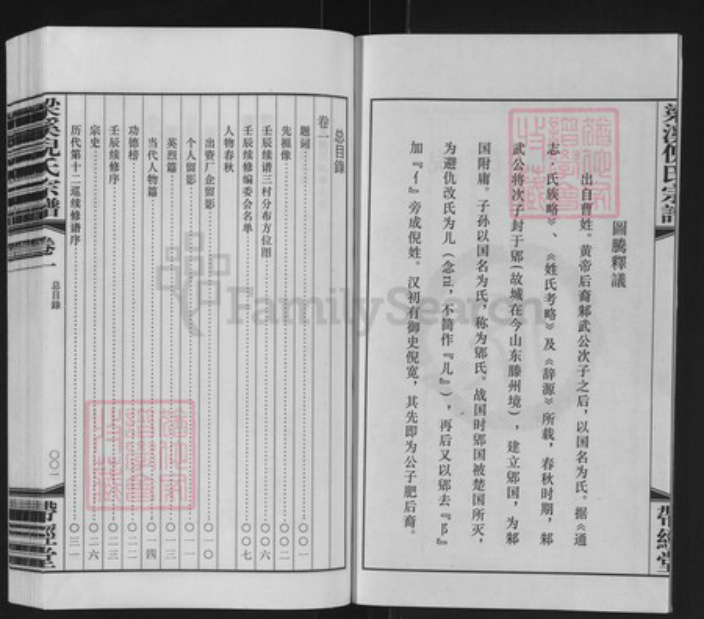 圖騰釋議
出自曹姓。黄帝后裔邾武公次子之后，以国名为氏。据《通
志·氏族略》、《姓氏考略》及《辞源》所载，春秋时期，邾
武公将次子封于郳（故城在今山东滕州境），建立郳国，为邾
国附庸。子孙以国名为氏，称为郳氏。战国时郳国被楚国所灭，
为避仇改氏为儿（念ní，不简作『儿』），再后又以郳去『阝』
加『亻』旁成倪姓。汉初有御史倪宽，其先即为公子肥后裔。
梁溪倪氏宗譜
帶經堂
总目錄
卷一
题词 〇〇一
先祖像 〇〇二
壬辰续谱三村分布方位图 〇〇六
壬辰续修编委会名单 〇〇七
人物春秋
出资厂企留影 〇一〇
个人留影 〇一一
英烈篇 〇一三
当代人物篇 〇一四
功德榜 〇二二
壬辰续修序 〇二三
宗史 〇二六
历代第十二巡续修谱序 〇三一
梁溪倪氏宗譜
卷一
总目錄
〇〇一
帶經堂
FamilySearch